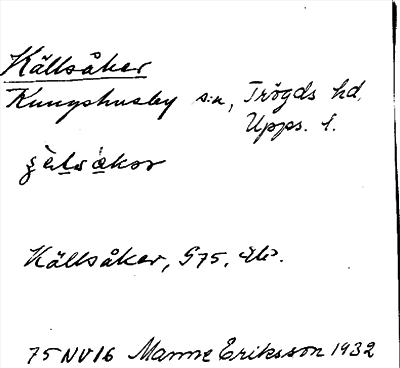 Källsåker
Kungshusby sn, Trögds hd,
Upps. l.
Källsåker, G75,
75 NV16 Manne Eriksson 1932